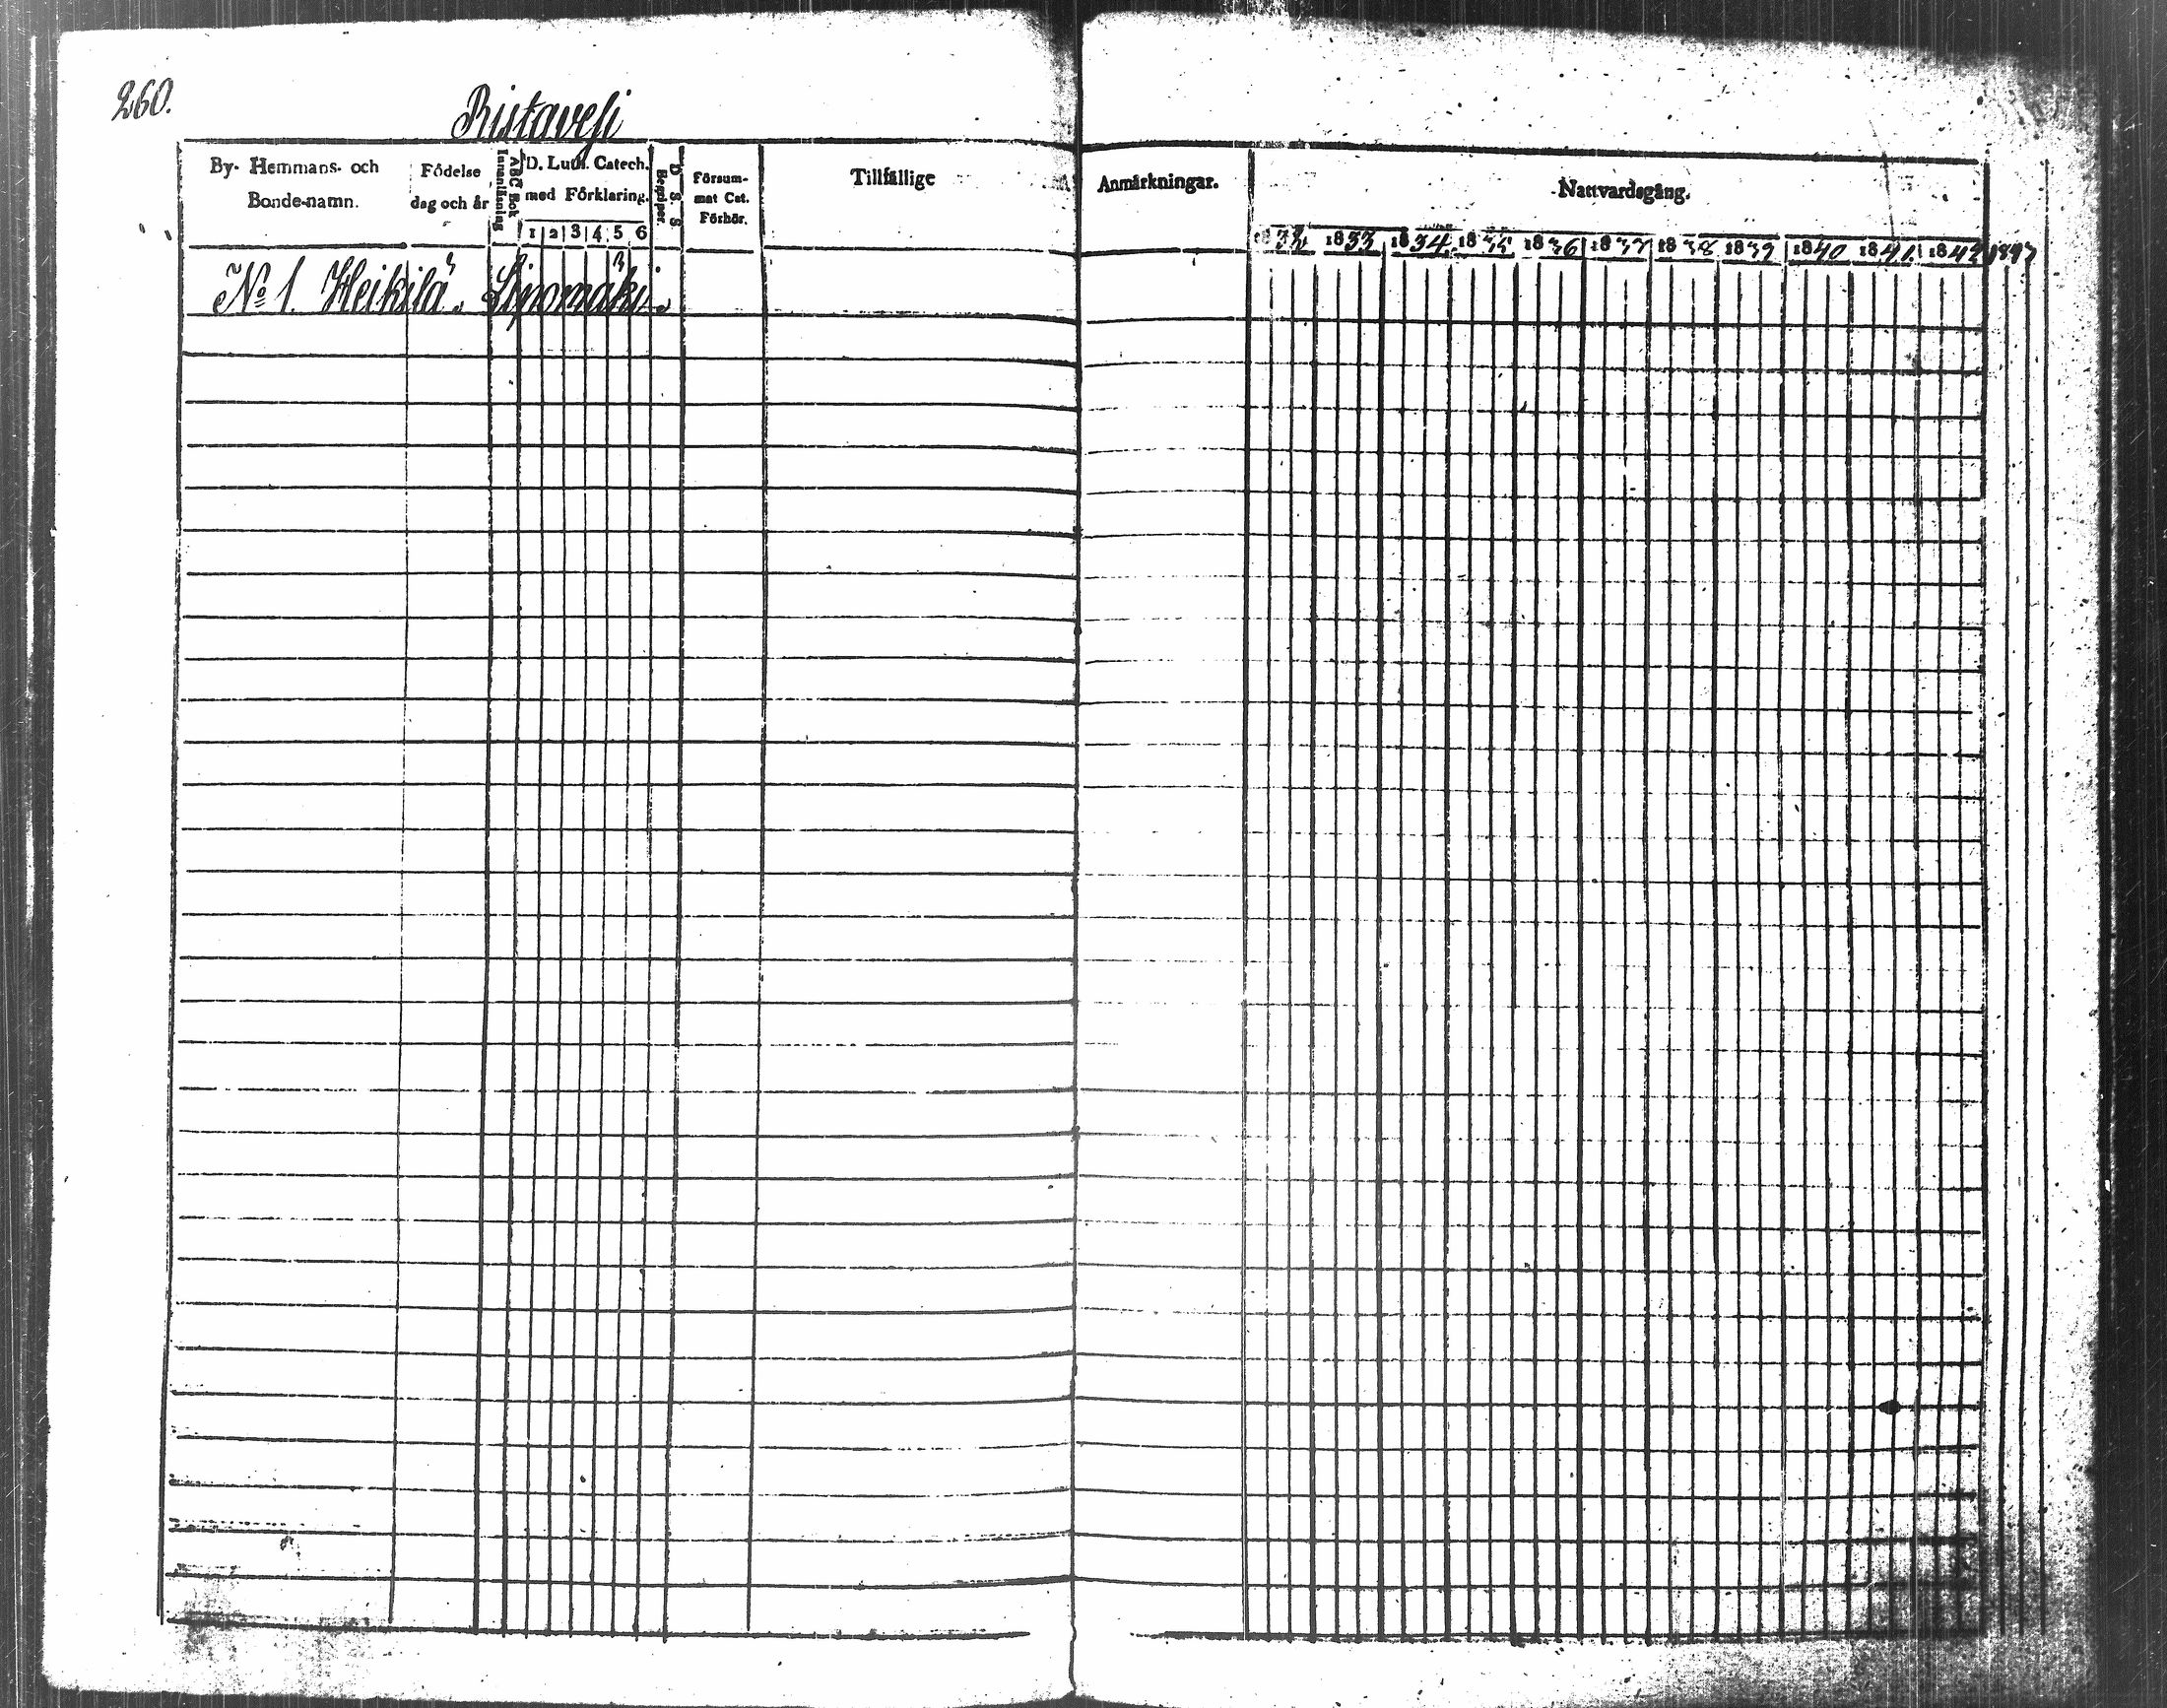 260.
Ristavesi
By- Hemmans- och Bonde-namn.
Födelse dag och år
ABC Bok
Innanläsning
D. Luth. Catech. med Förklaring.
1 2 3 4 5 6
D. S. S
Begriper.
Försum-mat Cat. Förhör.
Tillfällige
Anmärkningar.
Nattvardsgång.
1832 1833 1834 1835 1836 1837 1838 1839 1840 1841. 1842
No 1. Heikilä.